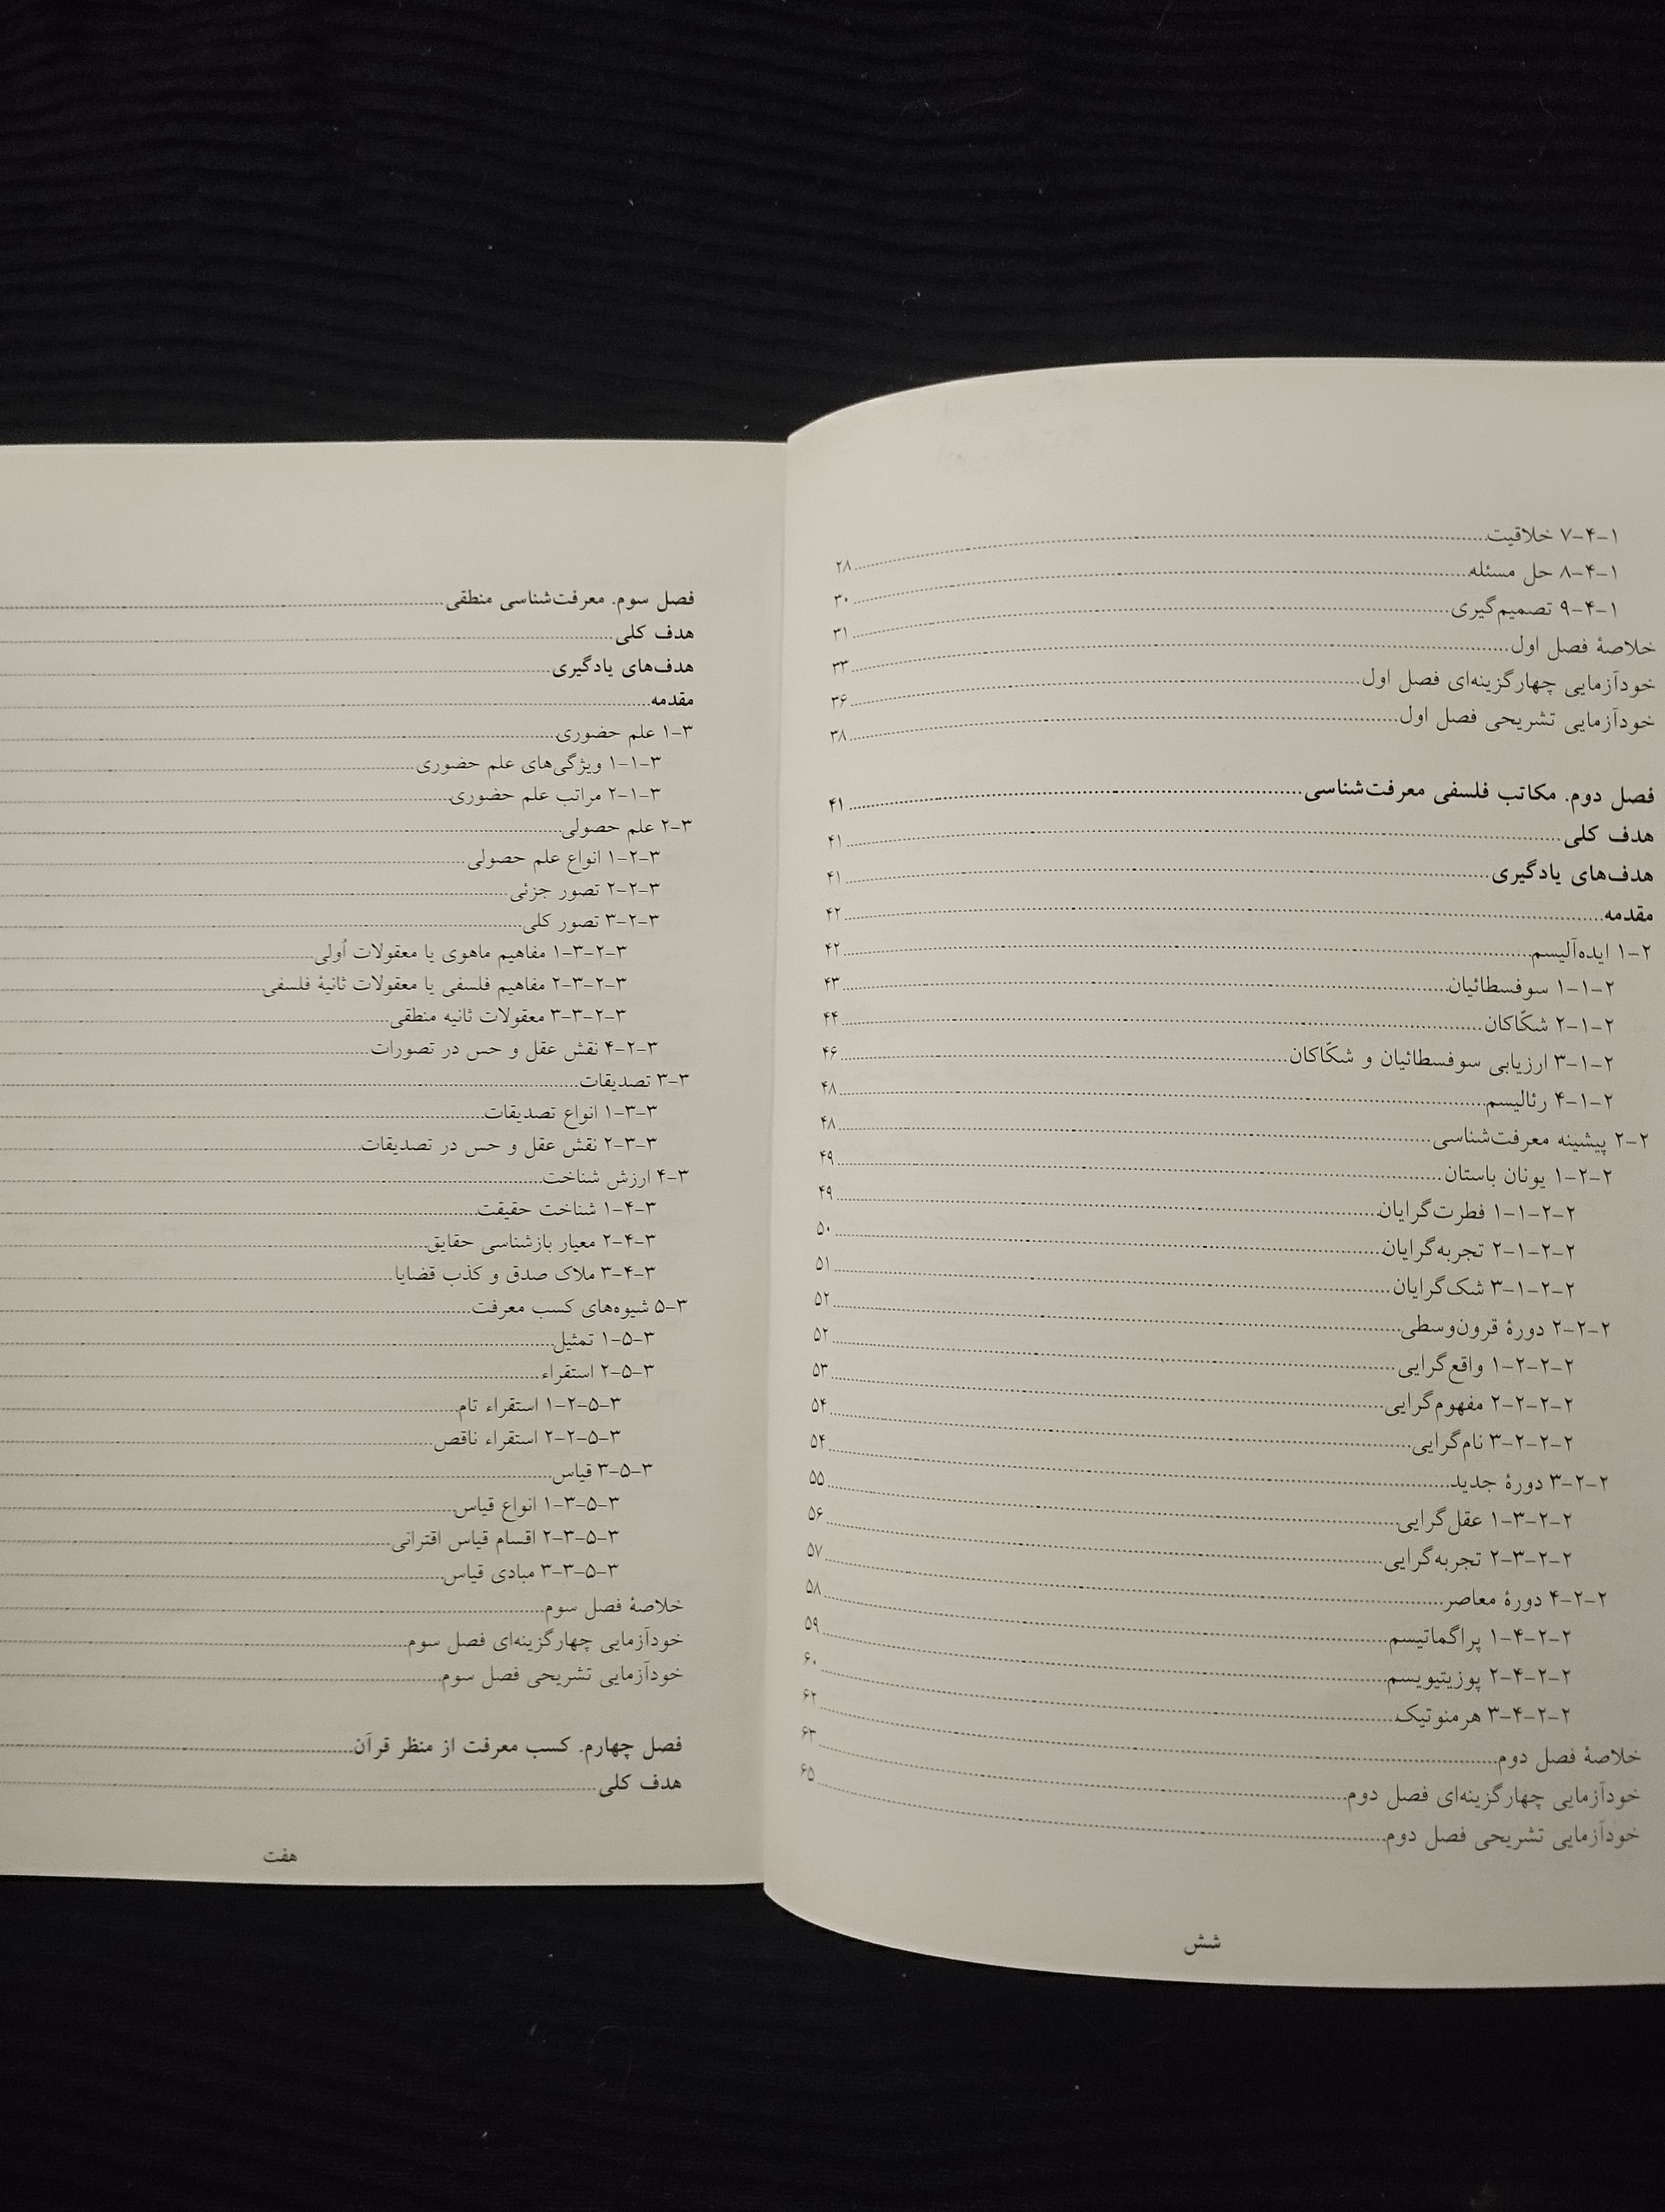 ۱-۴-۷ خلاقیت ۲۸
۱-۴-۸ حل مسئله ۳۰
۱-۴-۹ تصمیم‌گیری ۳۱
خلاصهٔ فصل اول ۳۳
خودآزمایی چهارگزینه‌ای فصل اول ۳۶
خودآزمایی تشریحی فصل اول ۳۸
فصل دوم. مکاتب فلسفی معرفت‌شناسی ۴۱
هدف کلی ۴۱
هدف‌های یادگیری ۴۱
مقدمه ۴۲
۲-۱ ایده‌آلیسم ۴۲
۲-۱-۱ سوفسطائیان ۴۳
۲-۱-۲ شکّاکان ۴۴
۲-۱-۳ ارزیابی سوفسطائیان و شکّاکان ۴۶
۲-۱-۴ رئالیسم ۴۸
۲-۲ پیشینه معرفت‌شناسی ۴۸
۲-۲-۱ یونان باستان ۴۹
۲-۲-۱-۱ فطرت‌گرایان ۴۹
۲-۲-۱-۲ تجربه‌گرایان ۵۰
۲-۲-۱-۳ شک‌گرایان ۵۱
۲-۲-۲ دورهٔ قرون‌وسطی ۵۲
۲-۲-۲-۱ واقع‌گرایی ۵۲
۲-۲-۲-۲ مفهوم‌گرایی ۵۳
۲-۲-۲-۳ نام‌گرایی ۵۴
۲-۲-۳ دورهٔ جدید ۵۴
۲-۲-۳-۱ عقل‌گرایی ۵۵
۲-۲-۳-۲ تجربه‌گرایی ۵۶
۲-۲-۴ دورهٔ معاصر ۵۷
۲-۲-۴-۱ پراگماتیسم ۵۸
۲-۲-۴-۲ پوزیتیویسم ۵۹
۲-۲-۴-۳ هرمنوتیک ۶۰
خلاصهٔ فصل دوم ۶۲
خودآزمایی چهارگزینه‌ای فصل دوم ۶۳
خودآزمایی تشریحی فصل دوم ۶۵
شش
فصل سوم. معرفت‌شناسی منطقی
هدف کلی
هدف‌های یادگیری
مقدمه
۳-۱ علم حضوری
۳-۱-۱ ویژگی‌های علم حضوری
۳-۱-۲ مراتب علم حضوری
۳-۲ علم حصولی
۳-۲-۱ انواع علم حصولی
۳-۲-۲ تصور جزئی
۳-۲-۳ تصور کلی
۳-۲-۳-۱ مفاهیم ماهوی یا معقولات اُولی
۳-۲-۳-۲ مفاهیم فلسفی یا معقولات ثانیهٔ فلسفی
۳-۲-۳-۳ معقولات ثانیه منطقی
۳-۲-۴ نقش عقل و حس در تصورات
۳-۳ تصدیقات
۳-۳-۱ انواع تصدیقات
۳-۳-۲ نقش عقل و حس در تصدیقات
۳-۴ ارزش شناخت
۳-۴-۱ شناخت حقیقت
۳-۴-۲ معیار بازشناسی حقایق
۳-۴-۳ ملاک صدق و کذب قضایا
۳-۵ شیوه‌های کسب معرفت
۳-۵-۱ تمثیل
۳-۵-۲ استقراء
۳-۵-۲-۱ استقراء تام
۳-۵-۲-۲ استقراء ناقص
۳-۵-۳ قیاس
۳-۵-۳-۱ انواع قیاس
۳-۵-۳-۲ اقسام قیاس اقترانی
۳-۵-۳-۳ مبادی قیاس
خلاصهٔ فصل سوم
خودآزمایی چهارگزینه‌ای فصل سوم
خودآزمایی تشریحی فصل سوم
فصل چهارم. کسب معرفت از منظر قرآن
هدف کلی
هفت